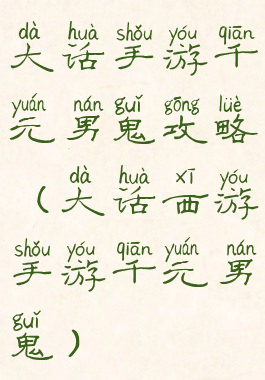 dà huà shǒu yóu qiān
大话手游千
yuán nán guǐ gōng lüè
元男鬼攻略
dà huà xī yóu
（大话西游
shǒu yóu qiān yuán nán
手游千元男
guǐ
鬼）